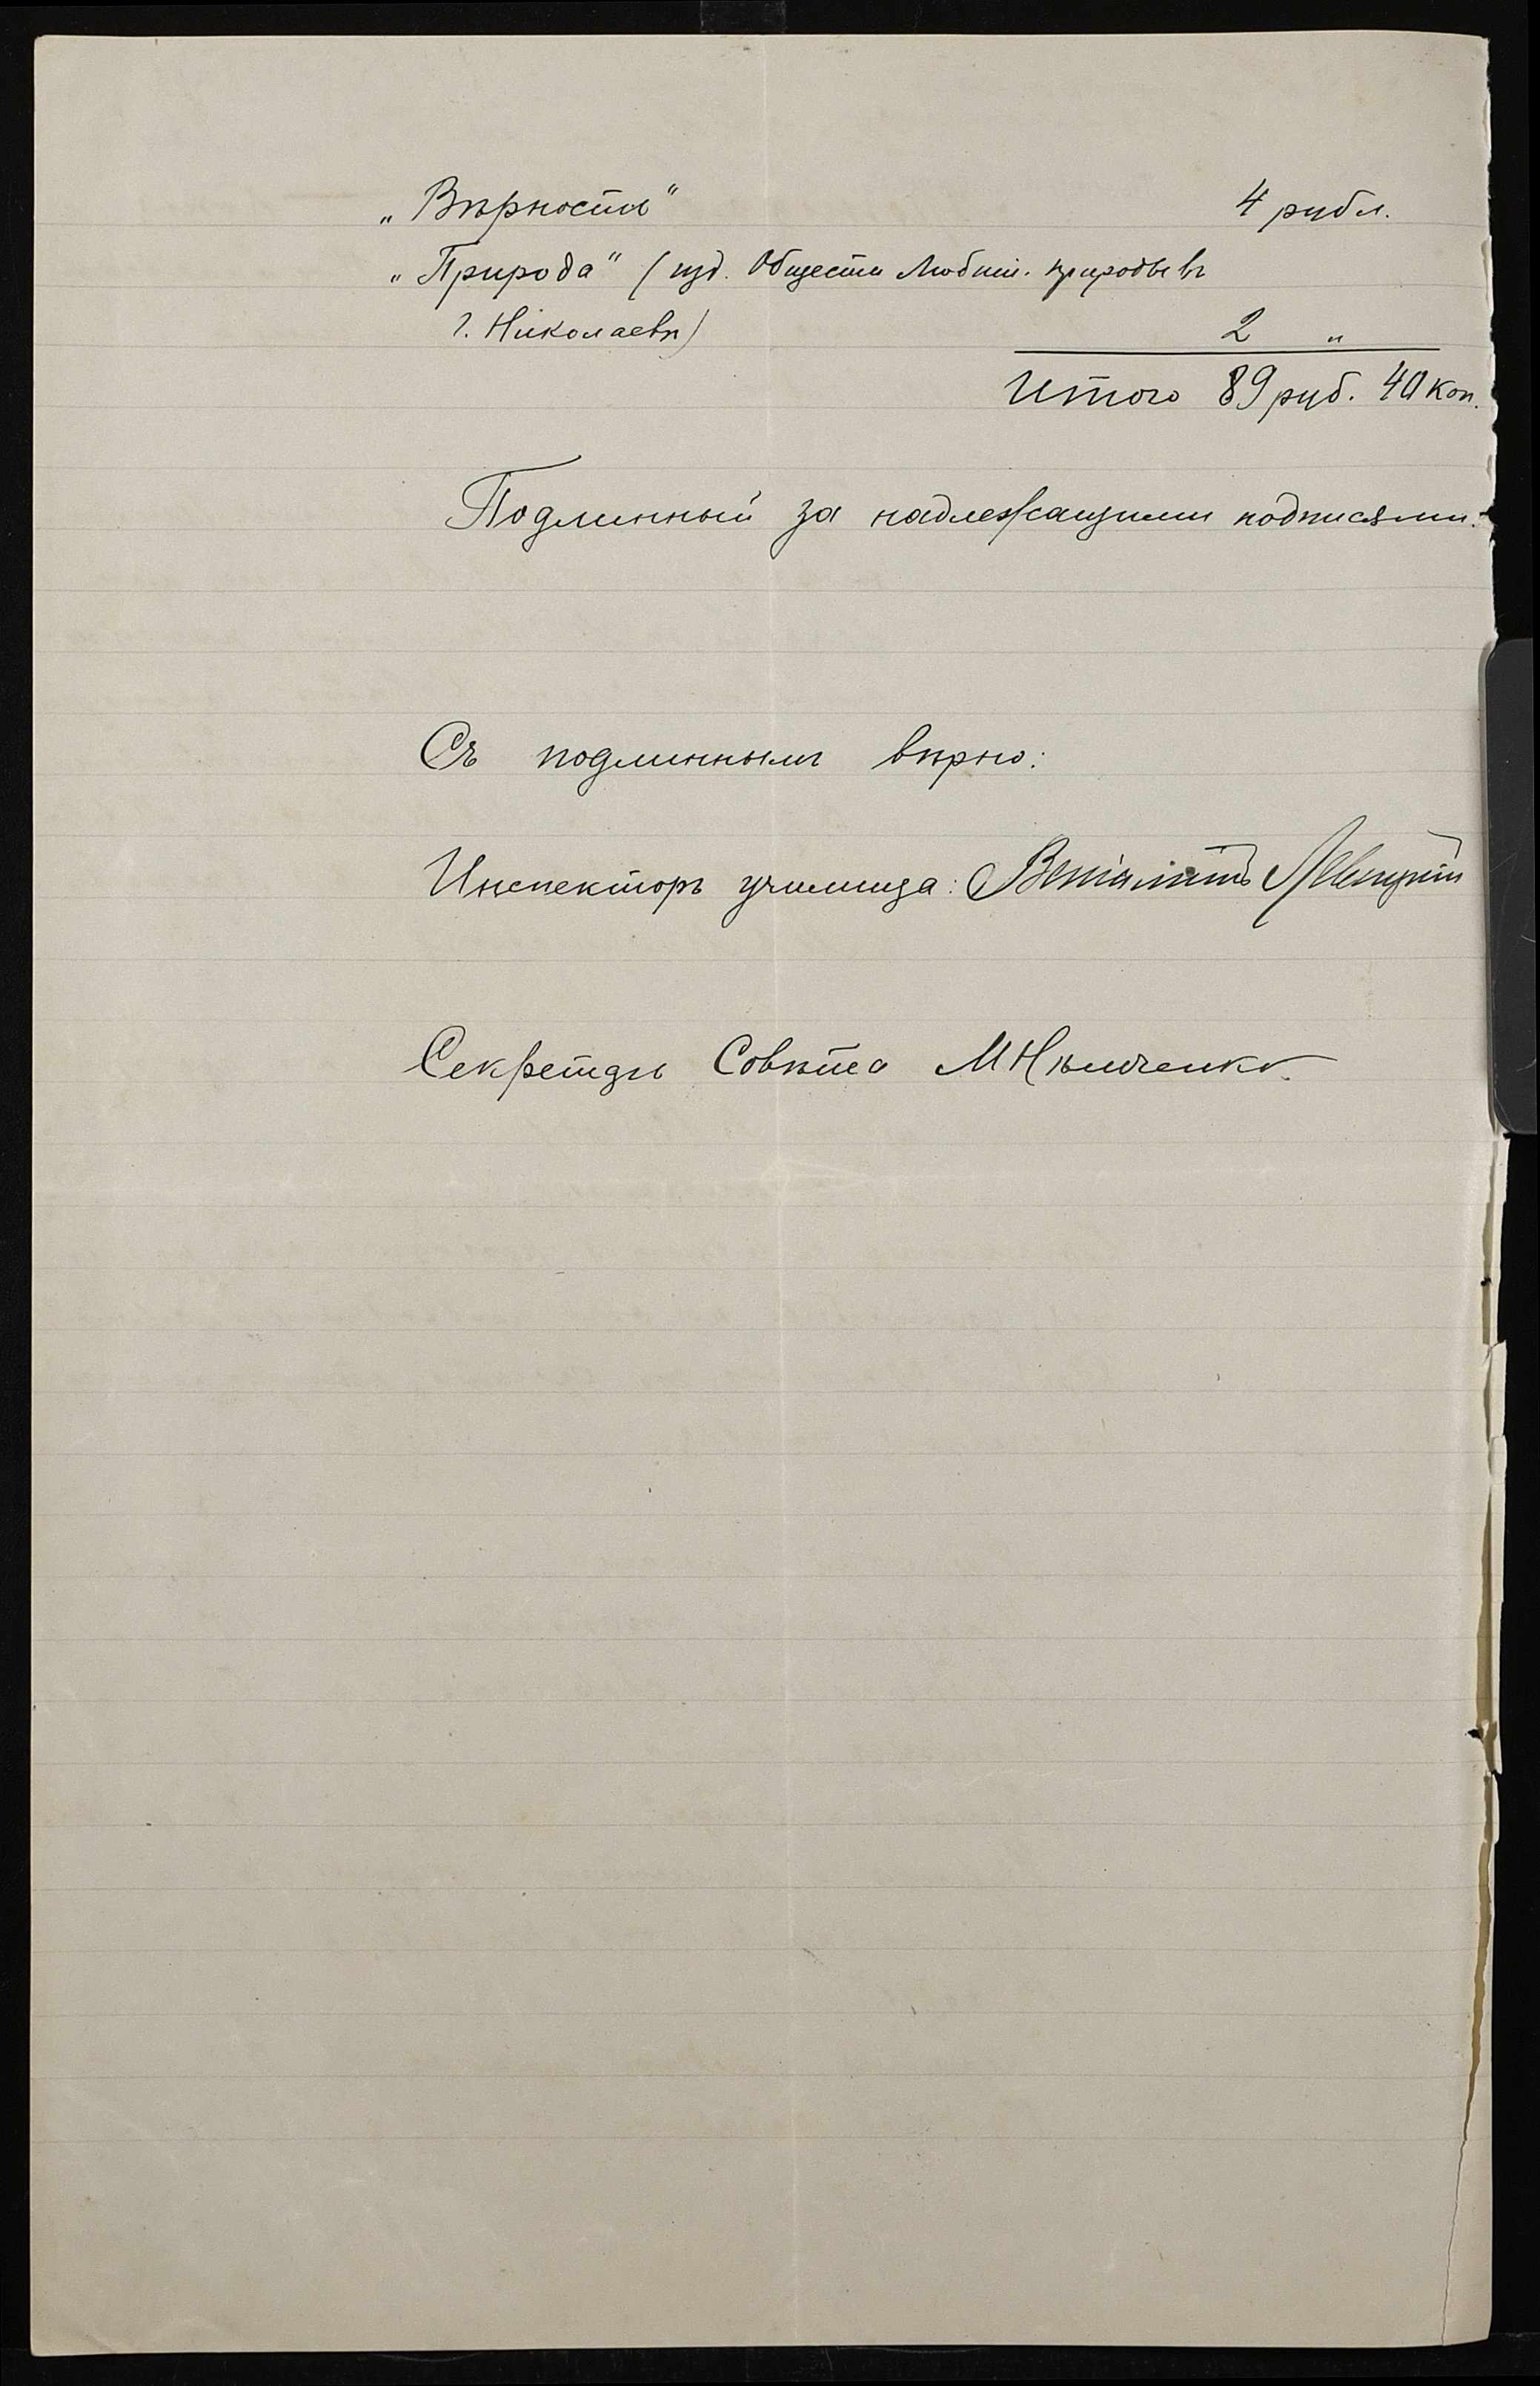 „Вѣрность“ 4 рубл.
„Природа“ (изд. Общества Любит. природы въ
г. Николаевѣ) 2 „
Итого 89 руб. 40 коп.
Подлинный за надлежащими подписями.
Съ подлиннымъ вѣрно:
Инспекторъ училища:
Секретарь Совѣта М Нѣмченко.